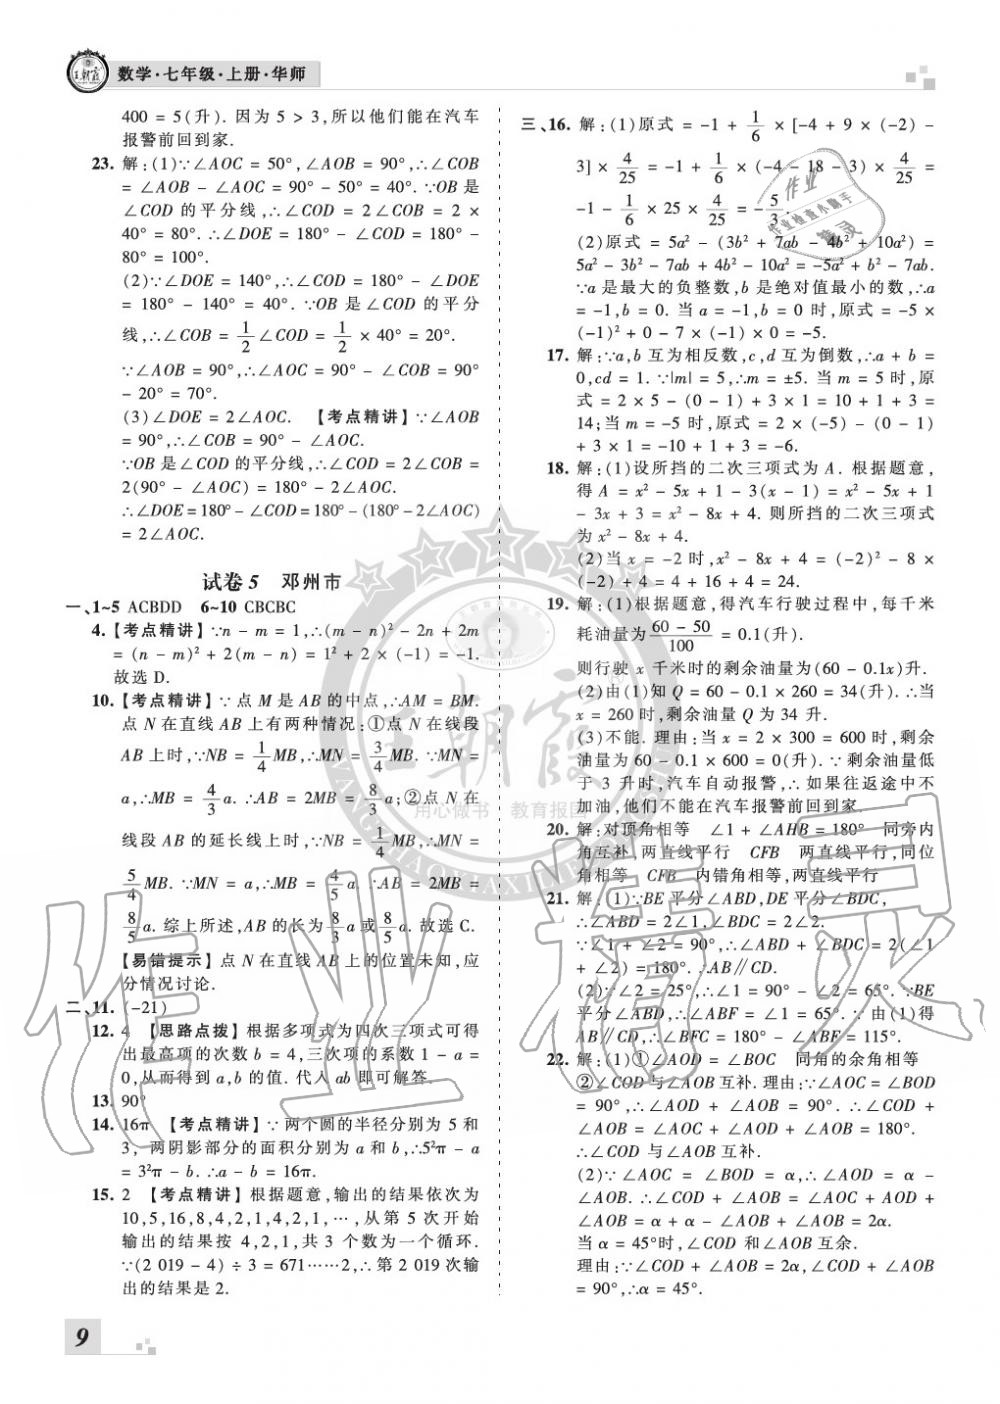 王朝霞 数学·七年级·上册·华师
400 = 5(升). 因为 5 > 3,所以他们能在汽车
报警前回到家.
23. 解:(1)∵∠AOC = 50°,∠AOB = 90°,∴∠COB
= ∠AOB - ∠AOC = 90° - 50° = 40°. ∵OB 是
∠COD 的平分线,∴∠COD = 2∠COB = 2 ×
40° = 80°. ∴∠DOE = 180° - ∠COD = 180° -
80° = 100°.
(2)∵∠DOE = 140°,∴∠COD = 180° - ∠DOE
= 180° - 140° = 40°. ∵OB 是∠COD 的平分
线,∴∠COB = 1/2∠COD = 1/2 × 40° = 20°.
∵∠AOB = 90°,∴∠AOC = 90° - ∠COB = 90°
- 20° = 70°.
(3)∠DOE = 2∠AOC. 【考点精讲】∵∠AOB
= 90°,∴∠COB = 90° - ∠AOC.
∵OB 是∠COD 的平分线,∴∠COD = 2∠COB =
2(90° - ∠AOC) = 180° - 2∠AOC.
∴∠DOE = 180° - ∠COD = 180° - (180° - 2∠AOC)
= 2∠AOC.
试卷 5 邓州市
一、1~5 ACBDD 6~10 CBCBC
4.【考点精讲】∵n - m = 1,∴(m - n)² - 2n + 2m
= (n - m)² + 2(m - n) = 1² + 2 × (-1) = -1.
故选 D.
10.【考点精讲】∵点 M 是 AB 的中点,∴AM = BM.
点 N 在直线 AB 上有两种情况:①点 N 在线段
AB 上时,∵NB = 1/4 MB,∴MN = 3/4 MB. ∵MN =
a,∴MB = 4/3 a. ∴AB = 2MB = 8/3 a;②点 N 在
线段 AB 的延长线上时,∵NB = 1/4 MB,∴MN =
5/4 MB. ∵MN = a,∴MB = 4/5 a. ∴AB = 2MB =
8/5 a. 综上所述,AB 的长为 8/3 a 或 8/5 a. 故选 C.
【易错提示】点 N 在直线 AB 上的位置未知,应
分情况讨论.
二、11. (-21)
12. 4 【思路点拨】根据多项式为四次三项式可得
出最高项的次数 b = 4,三次项的系数 1 - a =
0,从而得到 a,b 的值. 代入 ab 即可解答.
13. 90°
14. 16π 【考点精讲】∵两个圆的半径分别为 5 和
3,两阴影部分的面积分别为 a 和 b,∴5²π - a
= 3²π - b. ∴a - b = 16π.
15. 2 【考点精讲】根据题意,输出的结果依次为
10,5,16,8,4,2,1,4,2,1,…,从第 5 次开始
输出的结果按 4,2,1,共 3 个数为一个循环.
∵(2 019 - 4) ÷ 3 = 671……2,∴第 2 019 次输
出的结果是 2.
三、16. 解:(1)原式 = -1 + 1/6 × [-4 + 9 × (-2) -
3] × 4/25 = -1 + 1/6 × (-4 - 18 - 3) × 4/25 =
-1 - 1/6 × 25 × 4/25 = -5/3.
(2)原式 = 5a² - (3b² + 7ab - 4b² + 10a²) =
5a² - 3b² - 7ab + 4b² - 10a² = -5a² + b² - 7ab.
∵a 是最大的负整数,b 是绝对值最小的数,∴a
= -1,b = 0. 当 a = -1,b = 0 时,原式 = -5 ×
(-1)² + 0 - 7 × (-1) × 0 = -5.
17. 解:∵a,b 互为相反数,c,d 互为倒数,∴a + b =
0,cd = 1. ∵|m| = 5,∴m = ±5. 当 m = 5 时,原
式 = 2 × 5 - (0 - 1) + 3 × 1 = 10 + 1 + 3 =
14;当 m = -5 时,原式 = 2 × (-5) - (0 - 1)
+ 3 × 1 = -10 + 1 + 3 = -6.
18. 解:(1)设所挡的二次三项式为 A. 根据题意,
得 A = x² - 5x + 1 - 3(x - 1) = x² - 5x + 1
- 3x + 3 = x² - 8x + 4. 则所挡的二次三项式
为 x² - 8x + 4.
(2)当 x = -2 时,x² - 8x + 4 = (-2)² - 8 ×
(-2) + 4 = 4 + 16 + 4 = 24.
19. 解:(1)根据题意,得汽车行驶过程中,每千米
耗油量为 (60 - 50)/100 = 0.1(升).
则行驶 x 千米时的剩余油量为(60 - 0.1x)升.
(2)由(1)知 Q = 60 - 0.1 × 260 = 34(升). ∴当
x = 260 时,剩余油量 Q 为 34 升.
(3)不能. 理由:当 x = 2 × 300 = 600 时,剩余
油量为 60 - 0.1 × 600 = 0(升). ∵剩余油量低
于 3 升时,汽车自动报警,∴如果往返途中不
加油,他们不能在汽车报警前回到家.
20. 解:对顶角相等 ∠1 + ∠AHB = 180° 同旁内
角互补,两直线平行 CFB 两直线平行,同位
角相等 CFB 内错角相等,两直线平行
21. 解:(1)∵BE 平分∠ABD,DE 平分∠BDC,
∴∠ABD = 2∠1,∠BDC = 2∠2.
∵∠1 + ∠2 = 90°,∴∠ABD + ∠BDC = 2(∠1
+ ∠2) = 180°. ∴AB∥CD.
(2)∵∠2 = 25°,∴∠1 = 90° - ∠2 = 65°. ∵BE
平分∠ABD,∴∠ABF = ∠1 = 65°. 由(1)得
AB∥CD,∴∠BFC = 180° - ∠ABF = 115°.
22. 解:(1)①∠AOD = ∠BOC 同角的余角相等
②∠COD 与∠AOB 互补. 理由:∵∠AOC = ∠BOD
= 90°,∴∠AOD + ∠AOB = 90°. ∴∠COD +
∠AOB = ∠AOC + ∠AOD + ∠AOB = 180°.
∴∠COD 与∠AOB 互补.
(2)∵∠AOC = ∠BOD = α,∴∠AOD = α -
∠AOB. ∴∠COD + ∠AOB = ∠AOC + AOD +
∠AOB = α + α - ∠AOB + ∠AOB = 2α.
当 α = 45°时,∠COD 和∠AOB 互余.
理由:∵∠COD + ∠AOB = 2α,∠COD + ∠AOB
= 90°,∴α = 45°.
9
王朝霞
用心做书 教育报国
作业精灵
作业
作业检查小助手
精灵